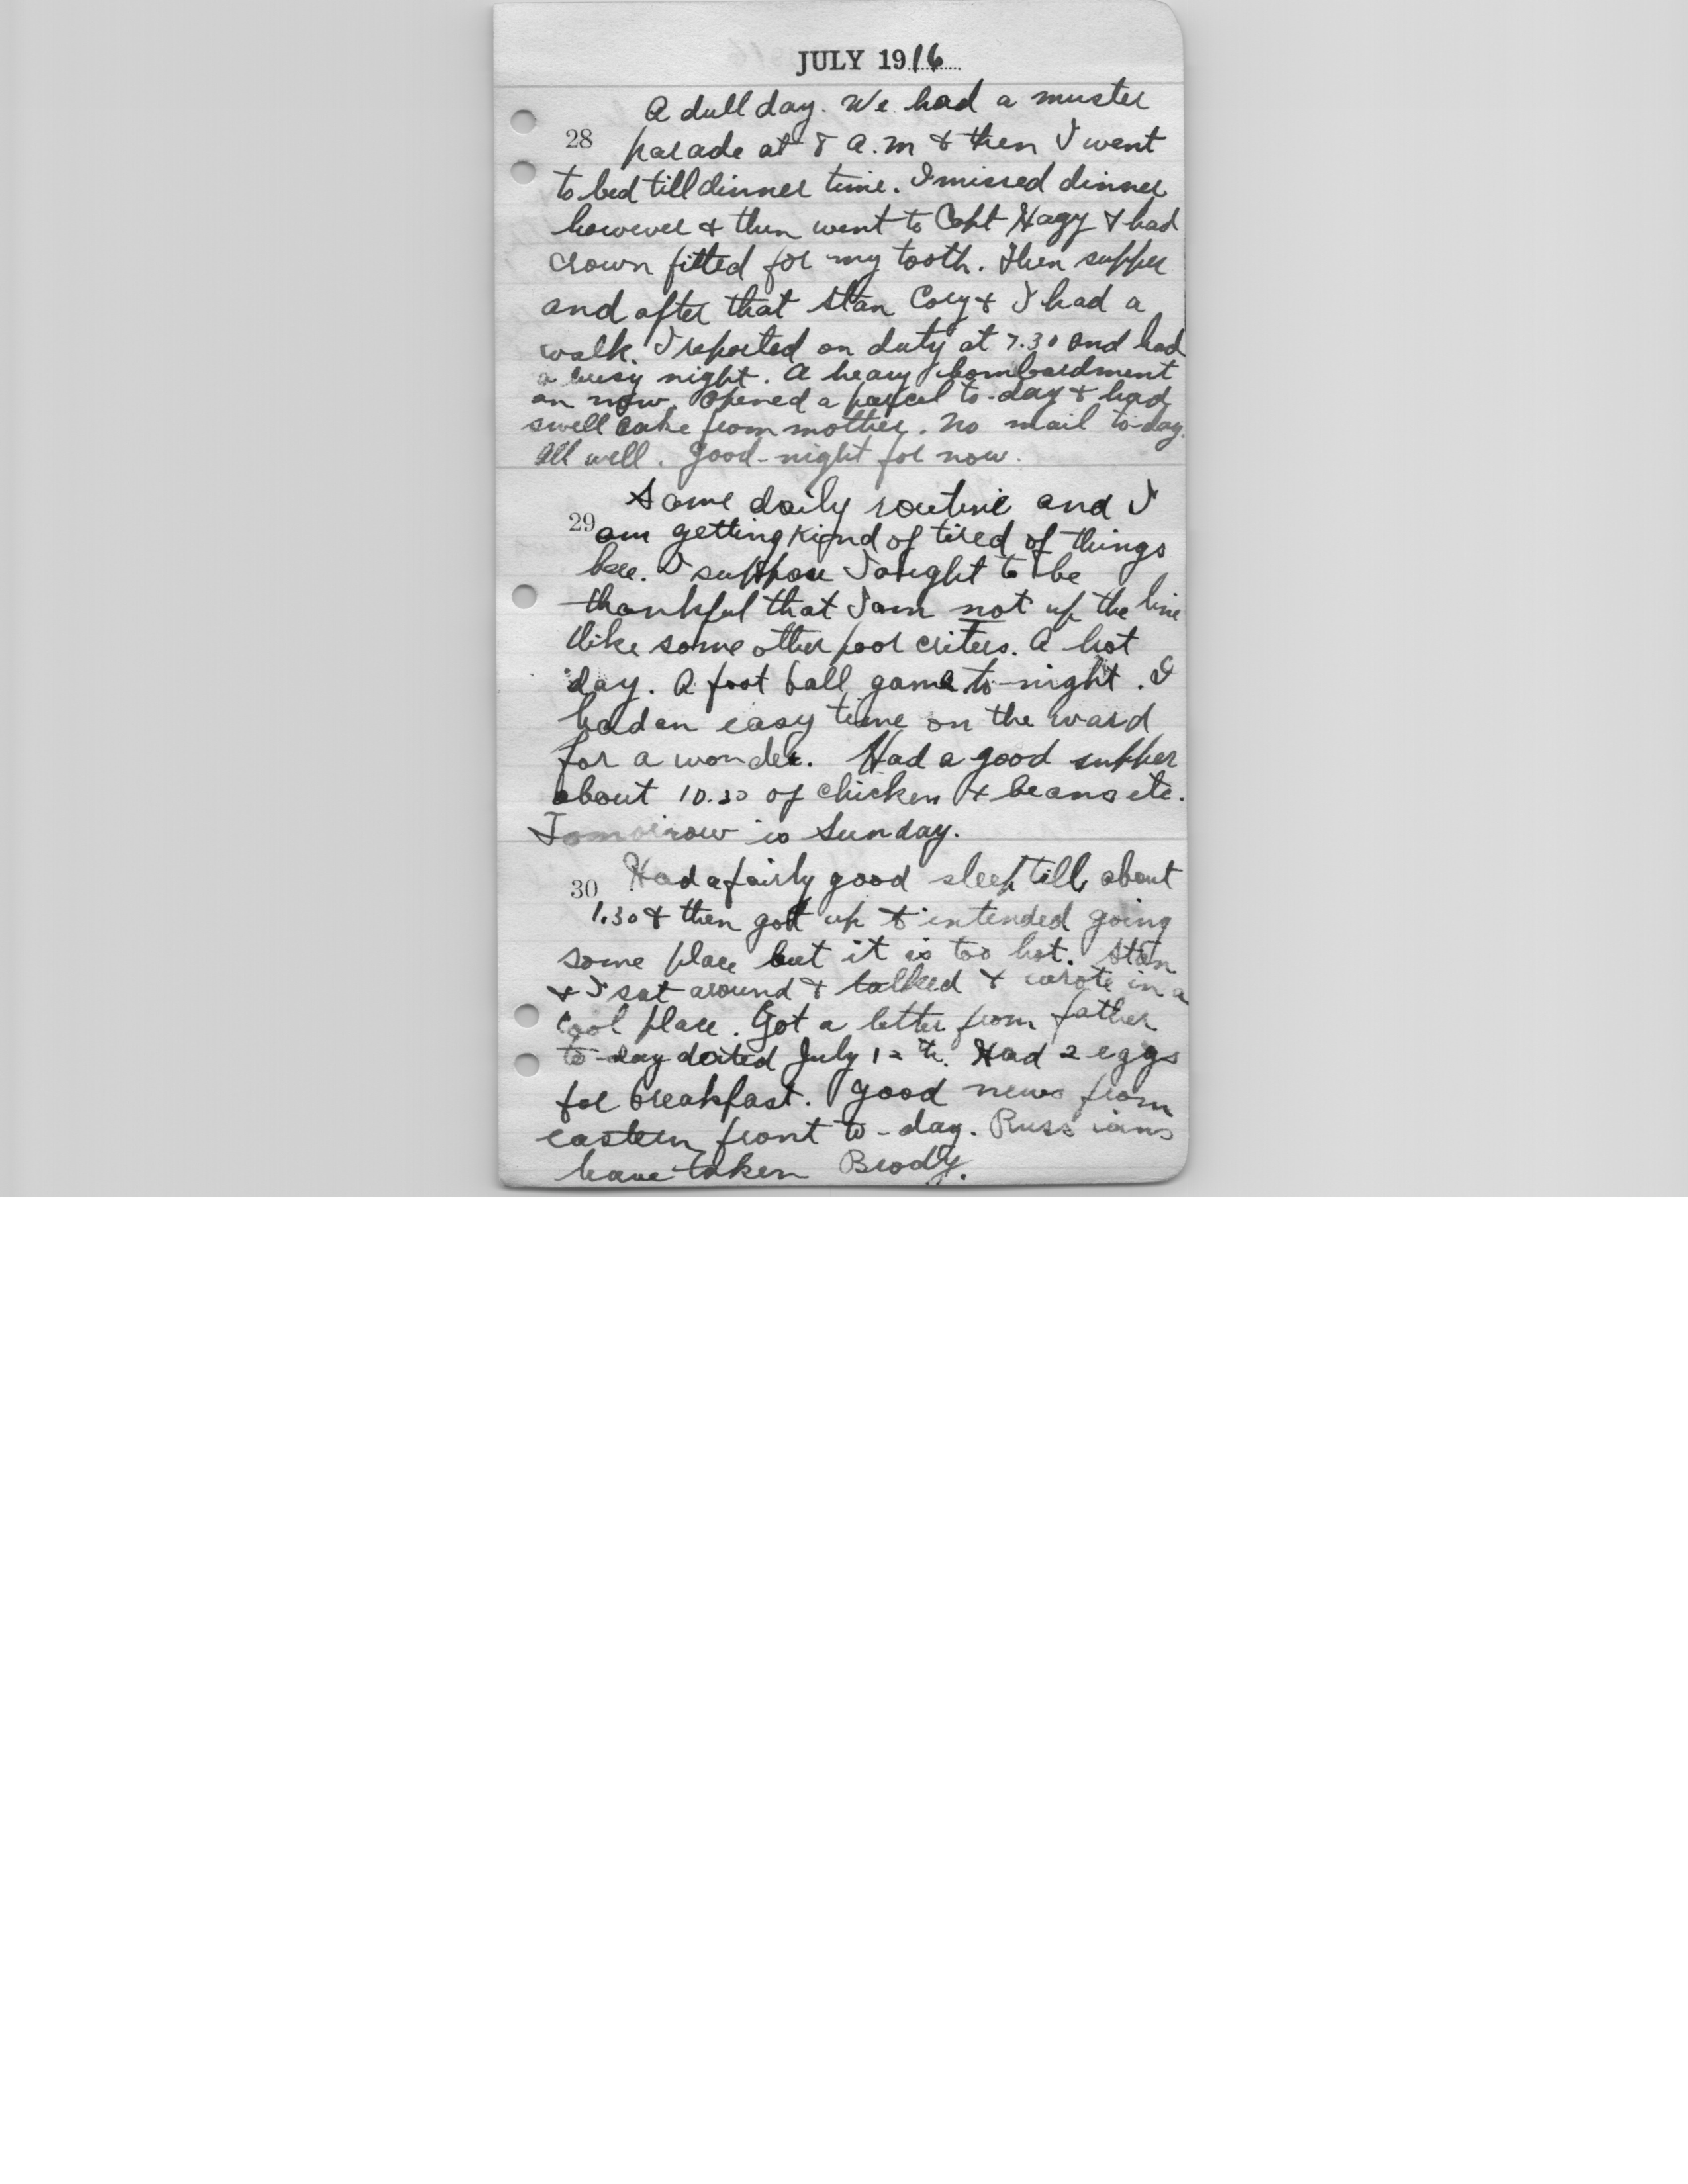 JULY 1916
A dull day. We had a muster
28 parade at 8 a.m & then I went
to bed till dinner time. I missed dinner
however & then went to Capt Hagy & had
crown fitted for my tooth. Then supper
and after that Stan Cory & I had a
walk. I reported on duty at 7.30 and had
a busy night. A heavy bombardment
on now. Opened a parcel to-day & had
swell cake from mother. No mail to-day.
All well. Good-night for now.
Same daily routine and I
29 am getting kind of tired of things
here. I suppose I ought to be
thankful that I am not up the line
like some other poor criters. A hot
day. A foot ball game to-night. I
had an easy time on the ward
for a wonder. Had a good supper
about 10.30 of chicken & beans etc.
Tomorrow is Sunday.
30 Had a fairly good sleep till about
1.30 & then got up & intended going
some place but it is too hot. Stan
& I sat around & talked & wrote in a
cool place. Got a letter from father
to-day dated July 12th. Had 2 eggs
for breakfast. Good news from
eastern front to-day. Russians
have taken Brody.